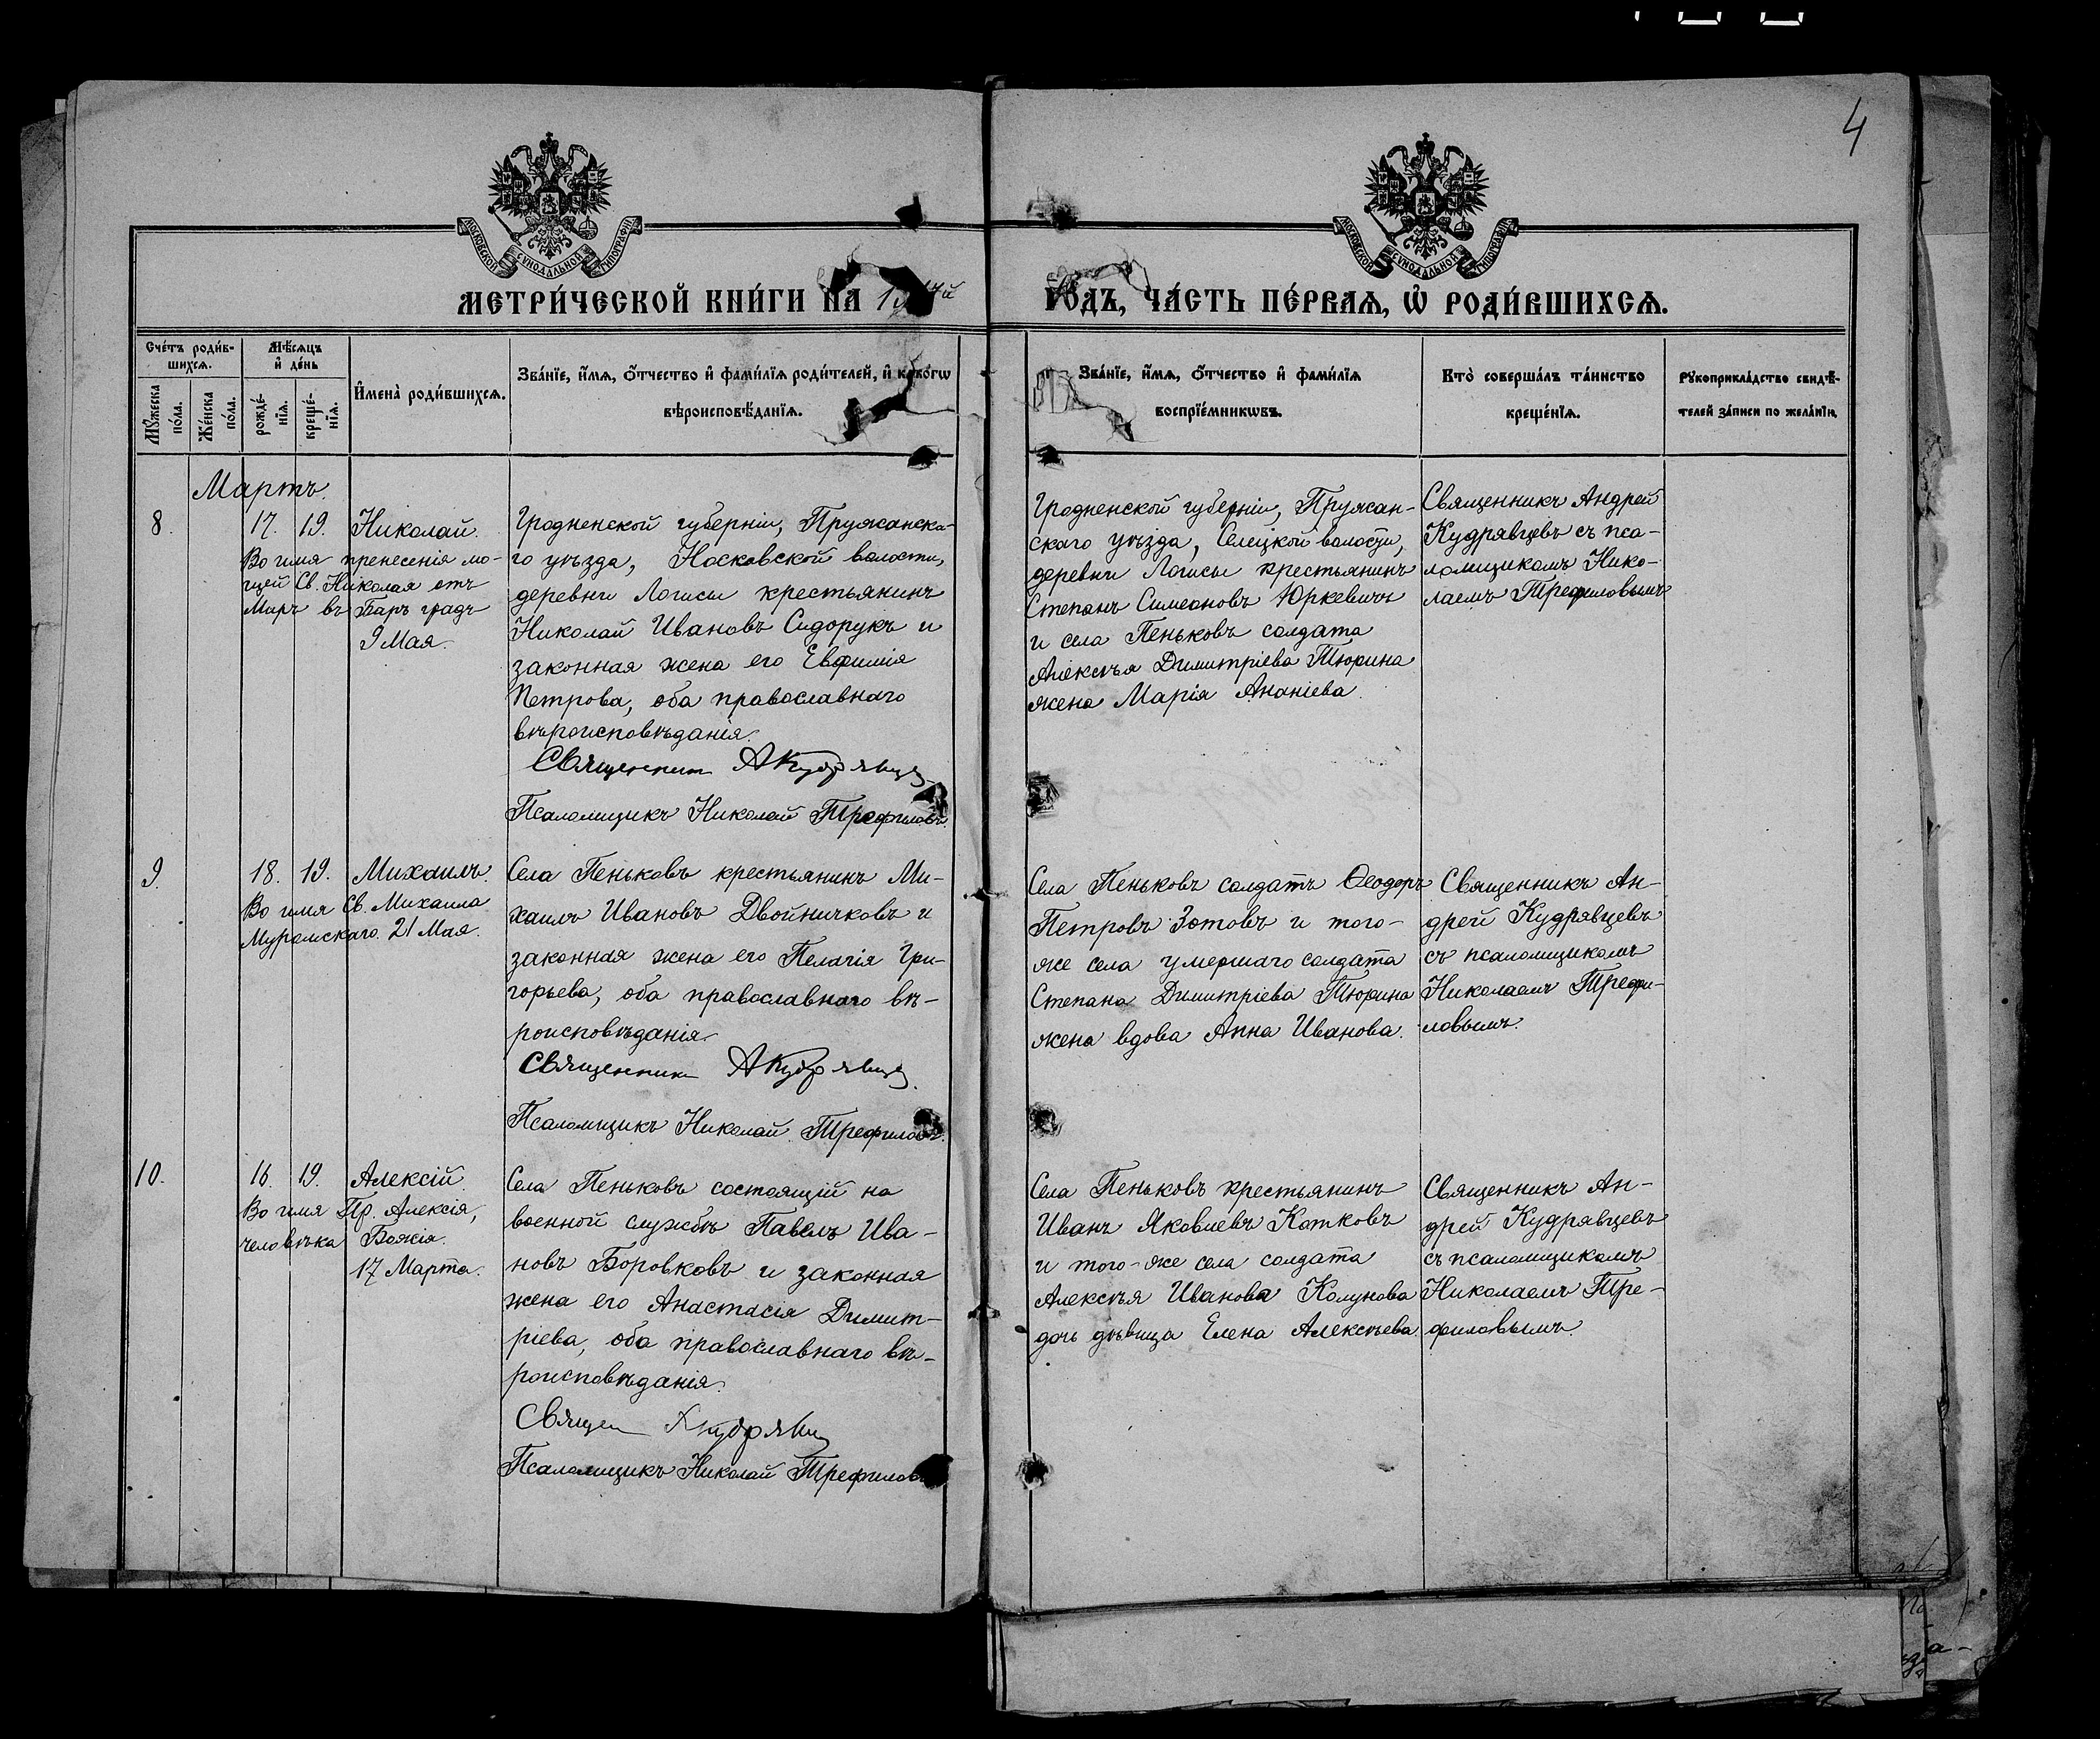 4
МОСКОВСКОЙ СѴНОДАЛЬНОЙ ТИПОГРАФІИ
МОСКОВСКОЙ СѴНОДАЛЬНОЙ ТИПОГРАФІИ
МЕТРИ́ЧЕСКОЙ КНИ́ГИ НА
ГОДЪ, ЧА́СТЬ ПЕ́РВАѦ, Ѡ҆ РОДИ́ВШИХСѦ.
Сче́тъ роди́в-
шихсѧ.
Мѣ́сѧцъ
и҆ де́нь
Мꙋ́жеска
по́ла.
Же́нска
по́ла.
рожде́-
нїѧ.
креще́-
нїѧ.
И҆мена̀ роди́вшихсѧ.
Зва́нїе, и҆́мѧ, ѻ҆́тчество и҆ фами́лїѧ роди́телей, и҆ како́гѡ
вѣроисповѣ́данїѧ.
Зва́нїе, и҆́мѧ, ѻ҆́тчество и҆ фами́лїѧ
воспрїе́мникѡвъ.
Кто̀ соверша́лъ та́инство
креще́нїѧ.
Рꙋкоприкла́дство свидѣ́-
телей за́писи по жела́нїю.
Мартъ.
8.
17.
19.
Николай.
Во имя пренесенія мо-
щей Св. Николая отъ
Миръ въ Баръ градъ
9 Мая.
Гродненской губерніи, Пружанска-
го уѣзда, Носковской волости,
деревни Логисы крестьянинъ
Николай Ивановъ Сидорукъ и
законная жена его Евфимія
Петрова, оба православнаго
вѣроисповѣданія.
Священник А Кудрявцев
Псаломщикъ Николай Трефиловъ.
Гродненской губерніи, Пружан-
скаго уѣзда, Селецкой волости,
деревни Логисы крестьянинъ
Степанъ Симеоновъ Юркевичъ
и села Пеньковъ солдата
Алексѣя Димитріева Тюрина
жена Марія Ананіева.
Священникъ Андрей
Кудрявцевъ съ пса-
ломщикомъ Нико-
лаемъ Трефиловымъ
9.
18.
19.
Михаилъ.
Во имя Св. Михаила
Муромскаго. 21 Мая.
Села Пеньковъ крестьянинъ Ми-
хаилъ Ивановъ Двойничковъ и
законная жена его Пелагія Гри-
горьева, оба православнаго вѣ-
роисповѣданія.
Священник А Кудрявцев.
Псаломщикъ Николай Трефиловъ.
Села Пеньковъ солдатъ Ѳеодоръ
Петровъ Зотовъ и того-
же села умершаго солдата
Степана Димитріева Тюрина
жена вдова Анна Иванова.
Священникъ Ан-
дрей Кудрявцевъ
съ псаломщикомъ
Николаемъ Трефи-
ловымъ.
10.
16.
19.
Алексій.
Во имя Пр. Алексія,
человѣка Божія.
17 Марта.
Села Пеньковъ состоящій на
военной службѣ Павелъ Ива-
новъ Боровковъ и законная
жена его Анастасія Димит-
ріева, оба православнаго вѣ-
роисповѣданія.
Священ А Кудрявц
Псаломщикъ Николай Трефиловъ
Села Пеньковъ крестьянинъ
Иванъ Яковлевъ Котковъ
и того-же села солдата
Алексѣя Иванова Колунова
дочь дѣвица Елена Алексѣева.
Священникъ Ан-
дрей Кудрявцевъ
съ псаломщикомъ
Николаемъ Тре-
филовымъ.